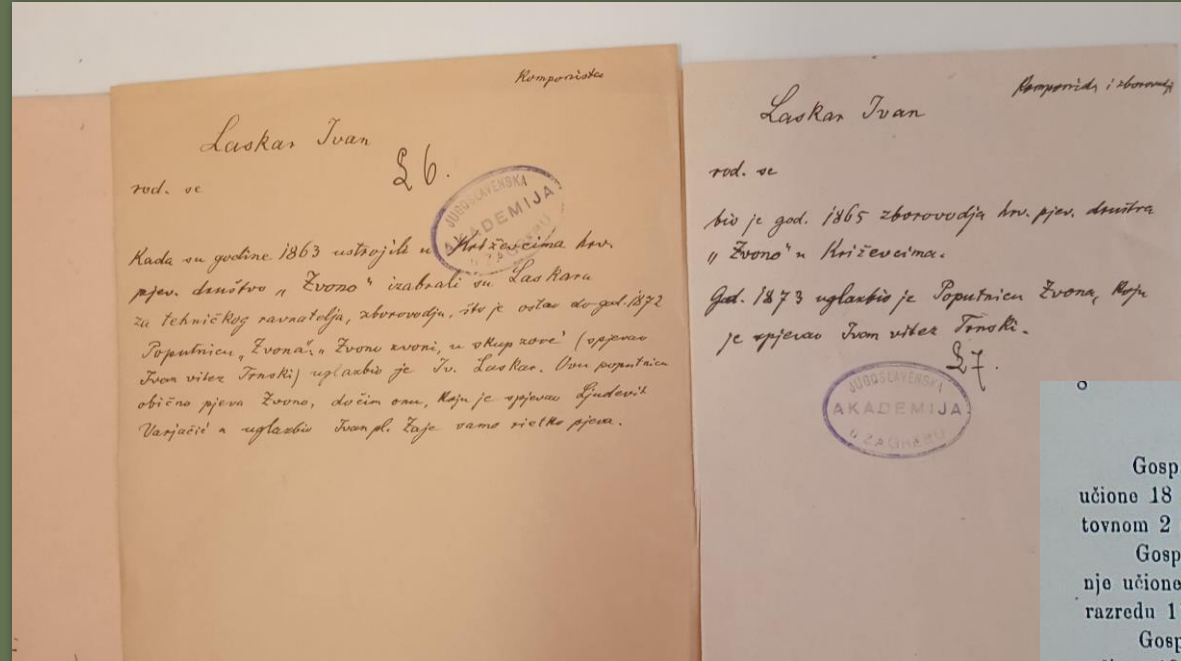 Komponista
Laskar Ivan
£ 6.
rod. se
JUGOSLAVENSKA
AKADEMIJA
U ZAGREBU
Kada su godine 1863 ustrojili u Križevcima hrv.
pjev. društvo „Zvono" izabrali su Laskara
za tehničkog ravnatelja, zborovodju, što je ostao do god. 1872
Poputnicu „Zvona": „Zvono zvoni, u skup zove" (spjevao
Ivan vitez Trnski) uglazbio je Iv. Laskar. Ovu poputnicu
obično pjeva Zvono, dočim onu, koju je spjevao Ljudevit
Varjačić a uglazbio Ivan pl. Zajc samo rietko pjeva.
Komponista i zborovodja
Laskar Ivan
rod. se
bio je god. 1865 zborovodja hrv. pjev. družtva
„Zvono" u Križevcima.
God. 1873 uglazbio je Poputnicu Zvona, koju
je spjevao Ivan vitez Trnski.
£ 7.
JUGOSLAVENSKA
AKADEMIJA
U ZAGREBU
Gosp
učione 18
tovnom 2
Gosp
nje učione
razredu 1
Gosp